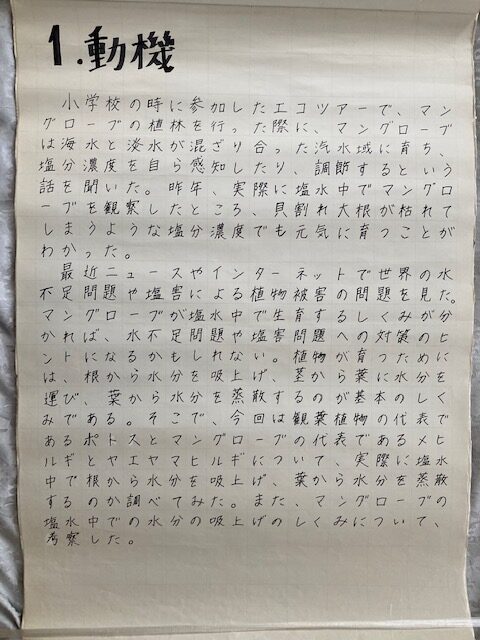 1.動機
小学校の時に参加したエコツアーで、マン
グローブの植林を行った際に、マングローブ
は海水と淡水が混ざり合った汽水域に育ち、
塩分濃度を自ら感知したり、調節するという
話を聞いた。昨年、実際に塩水中でマングロ
ーブを観察したところ、貝割れ大根が枯れて
しまうような塩分濃度でも元気に育つことが
わかった。
最近ニュースやインターネットで世界の水
不足問題や塩害による植物被害の問題を見た。
マングローブが塩水中で生育するしくみが分
かれば、水不足問題や塩害問題への対策のヒ
ントになるかもしれない。植物が育つために
は、根から水分を吸上げ、茎から葉に水分を
運び、葉から水分を蒸散するのが基本のしく
みである。そこで、今回は観葉植物の代表で
あるポトスとマングローブの代表であるメヒ
ルギとヤエヤマヒルギについて、実際に塩水
中で根から水分を吸上げ、葉から水分を蒸散
するのか調べてみた。また、マングローブの
塩水中での水分の吸上げのしくみについて、
考察した。